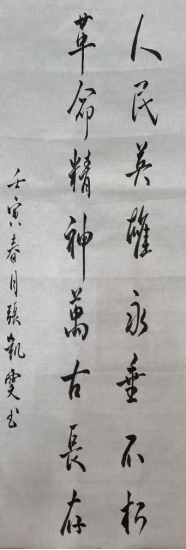 人民英雄永垂不朽
革命精神萬古長存
壬寅春月張凱雯书